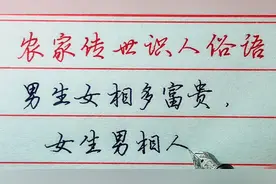 农家传世识人俗语
男生女相多富贵，
女生男相人